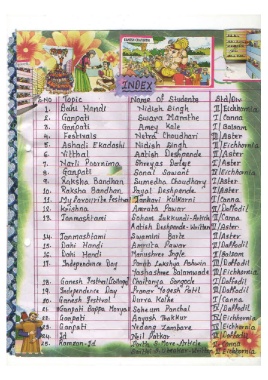 INDEX
S.NO Topic Name Of Students Std/Div
1. Dahi Handi Nidish Singh II/Eichhornia
2. Ganpati Swara Marathe I/Canna
3. Ganpati Amey Kale I/Balsam
4. Festivals Netra Chaudhari II/Aster
5. Ashadi Ekadashi Nidish Singh II/Eichhornia
6. Vitthal Aatish Deshpande II/Aster
7. Narli Poornima Shreyas Dofge I/Aster
8. Ganpati Sanal Sawant II/Eichhornia
9. Raksha Bandhan Sumedha Choudhary I/Aster
10. Raksha Bandhan Payal Deshpande I/Aster
11. My favourite festival Jankavi Kulkarni I/Canna
12. Krishna Amruta Pawar I/Daffodil
13. Janmashtami Soham
Aatish Deshpande - Written II/Aster
14. Janmashtami Swamini Barte I/Aster
15. Dahi Handi Amruta Pawar I/Daffodil
16. Dahi Handi Manashree Ingle I/Balsam
17. Independence Day Parth Lakshya Ashwin II/Daffodil
Yashashree II/Eichhornia
18. Ganesh Festival Chaitanya Gangode I/Daffodil
19. Independence Day Pranav Yogesh Patil I/Daffodil
20. Ganesh Festival Durva Kolhe I/Canna
21. Ganpati Bappa Morya Saksham Panchal I/Daffodil
22. Ganpati Aayush Thakkar II/Eichhornia
23. Ganpati Vedang Zambare II/Eichhornia
24. Id Neil Patkar I/Daffodil
25. Ramzan-Id I/Canna
Written II/Eichhornia